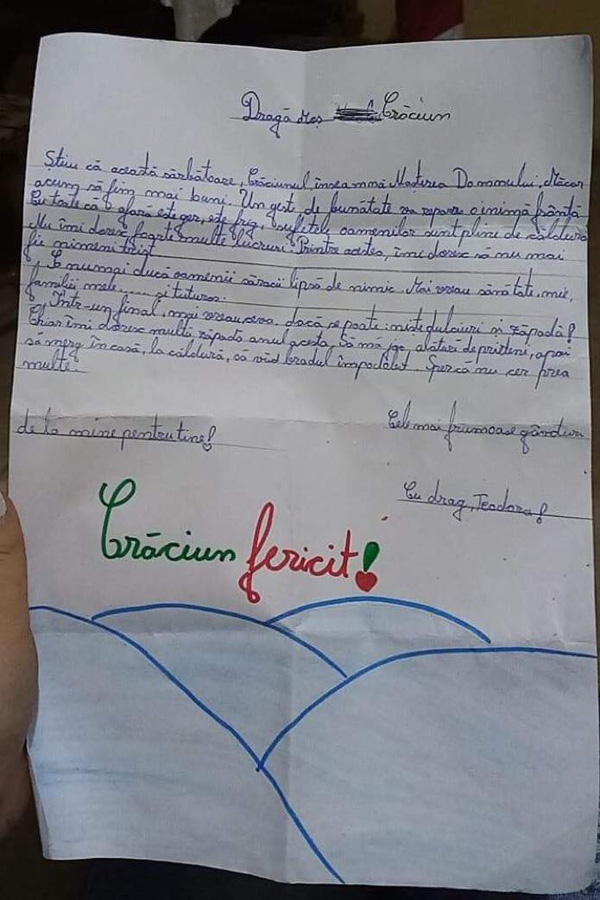 Dragă Moș Crăciun
Știu că această sărbătoare, Crăciunul înseamnă Nașterea Domnului. Măcar
acum să fim mai buni. Un gest de bunătate va repara o inimă frântă.
Cu toate că afară este ger, este frig, sufletele oamenilor sunt pline de căldură.
Nu îmi doresc foarte multe lucruri. Printre acestea, îmi doresc să nu mai
fie nimeni trist.
oamenii săraci lipsă de nimic. Mai vreau sănătate, mie,
familiei mele..... și tuturor.
Într-un final, mai vreau ceva, dacă se poate: niște dulciuri și zăpadă!
Chiar îmi doresc multă zăpadă anul acesta, să mă joc, alături de prieteni, apoi
să merg în casă, la căldură, să văd bradul împodobit. Sper că nu cer prea
multe.
Cele mai frumoase gânduri
de la mine pentru tine!
Cu drag, Teodora!
Crăciun fericit!